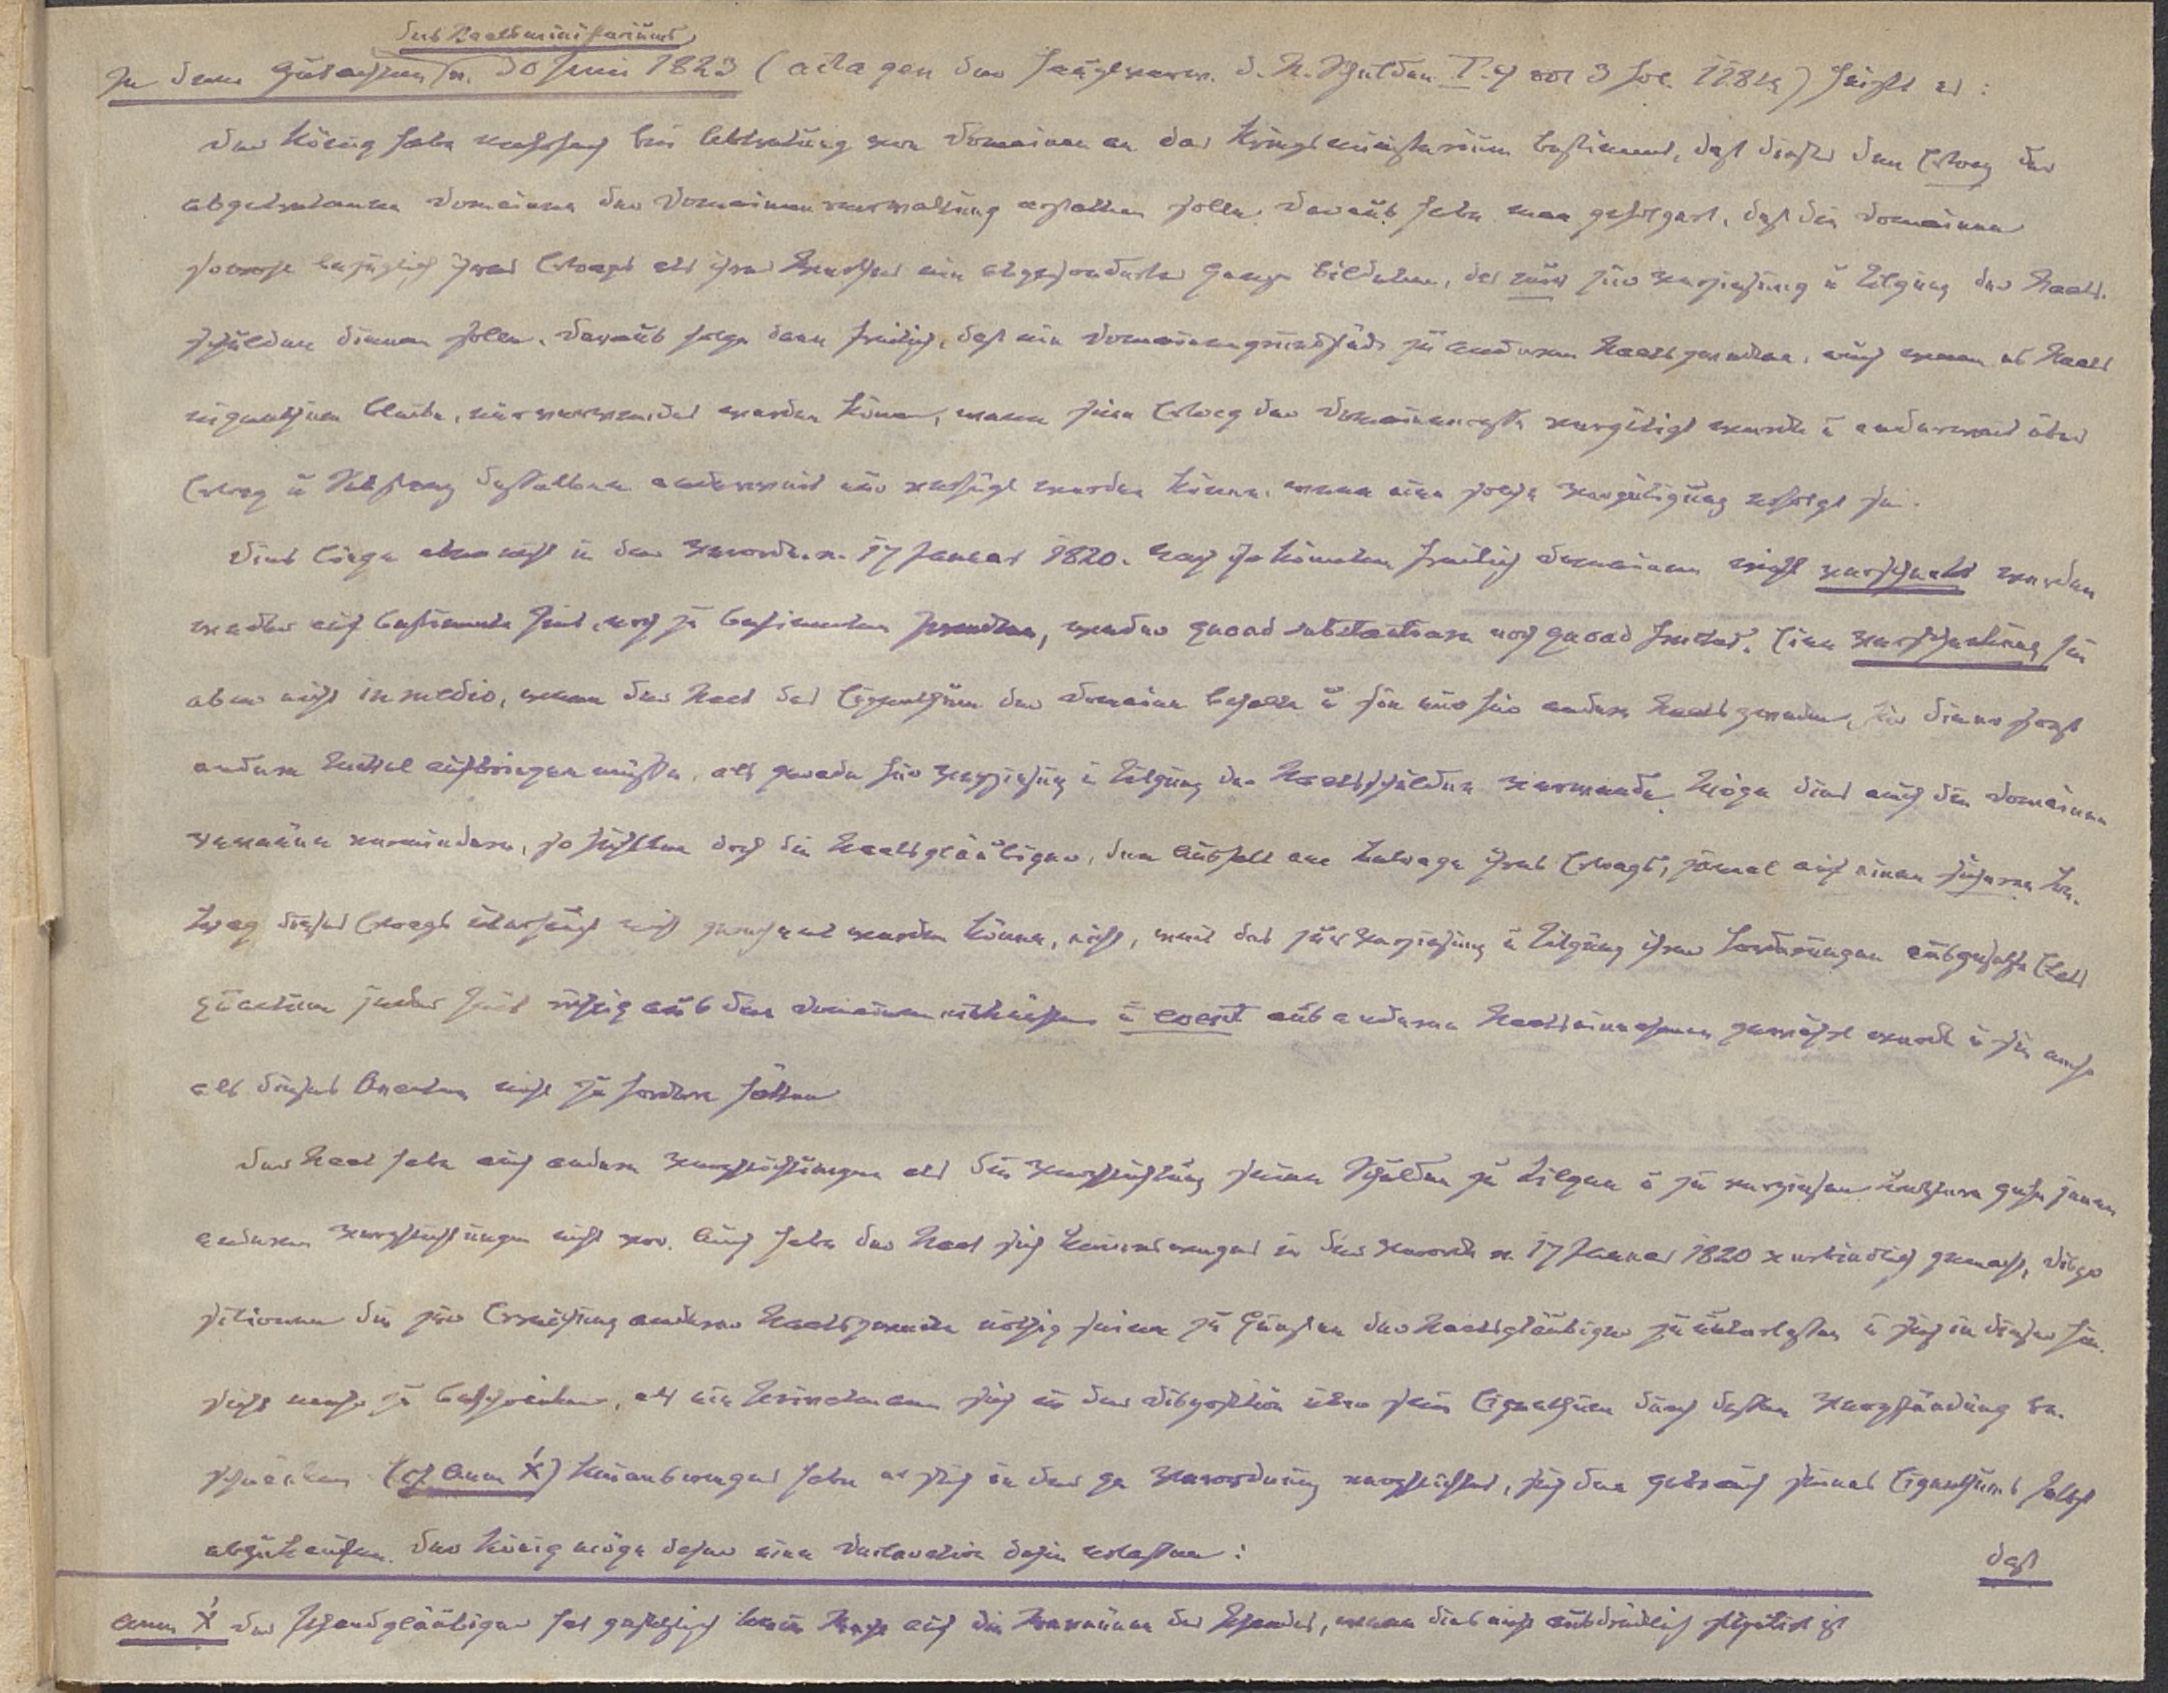 des Staatsministeriums
In dem Gutachten v. 30 Juni 1823 (acta gen der Hauptverw. d. St. Schulden I. 4 vol 3 fol. 118 ) heißt es:
Der König habe mehrfach bei Abtretung von Domainen an das Kriegsministerium bestimmt, daß dieses den Ertrag der
abgetretenen Domainen der Domainenverwaltung erstatten solle. Daraus habe man gefolgert, daß die Domainen
sowohl bezüglich ihres Ertrages als ihres Werthes ein abgesondertes Ganze bildeten, das nur zur Verzinsung u Tilgung der Staats-
schulden dienen solle. Daraus folge dann freilich, daß ein Domainengrundstück zu anderen Staatszwecken, auch wenn es Staats
eigenthum bleibe, nur verwendet werden könne, wenn sein Ertrag der Domainencasse vergütigt werde u anderweit über
Ertrag u Substanz desselben anderweit nur verfügt werden könne, wenn eine solche Vergütigung erfolgt sei.
Dies liege aber nicht in der Verordn. v. 17 Januar 1820. Nach ihr könnten freilich Domainen nicht verschenkt werden
weder auf bestimmte Zeit, noch zu bestimmten Zwecken, weder quoad substantiam noch quoad fructus. Eine Verschenkung sei
aber nicht in medio, wenn der Staat das Eigenthum der Domaine behalte u sie nur für andere Staatszwecke, für die er sonst
andere Mittel aufbringen müsse, als gerade für Verzinsung u Tilgung der Staatsschulden verwende. Möge dies auch die Domainen
revenüen vermindern, so hätten doch die Staatsgläubiger, den Ausfall am Betrage ihres Ertrags, zumal auf einen sicheren Be-
trag dieses Ertrags überhaupt nicht gerechnet werden könne, nicht, weil das zur Verzinsung u Tilgung ihrer Forderungen ausgesetzte Etats
quantum jeder Zeit richtig aus den Domaineneinkünften u event aus anderen Staatseinnahmen gewährt werde u sie mehr
als dieses Quantum nicht zu fordern hätten
Der Staat habe auch andere Verpflichtungen als die Verpflichtung seine Schulden zu tilgen u zu verzinsen. Letztere gehe jenen
anderen Verpflichtungen nicht vor. Auch habe der Staat sich keineswegs in der Verordn v. 17 Januar 1820 verbindlich gemacht, Dispo
sitionen die zur Erreichung anderer Staatszwecke nöthig seien zu Gunsten der Staatsgläubiger zu unterlassen u sich in dieser Hin-
sicht mehr zu beschränken, als ein Privatmann sich in der Disposition über sein Eigenthum durch dessen Verpfändung be-
schränke. (cf Anm X) Keineswegs habe er sich in der gen Verordnung verpflichtet, sich den Gebrauch seines Eigenthums selbst
abzukaufen. Der König möge daher eine Declaration dahin erlassen:
daß
Anm X Der Pfandgläubiger hat gesetzlich kein Recht auf die Revenüen des Pfandes, wenn dies nicht ausdrücklich stipulirt ist